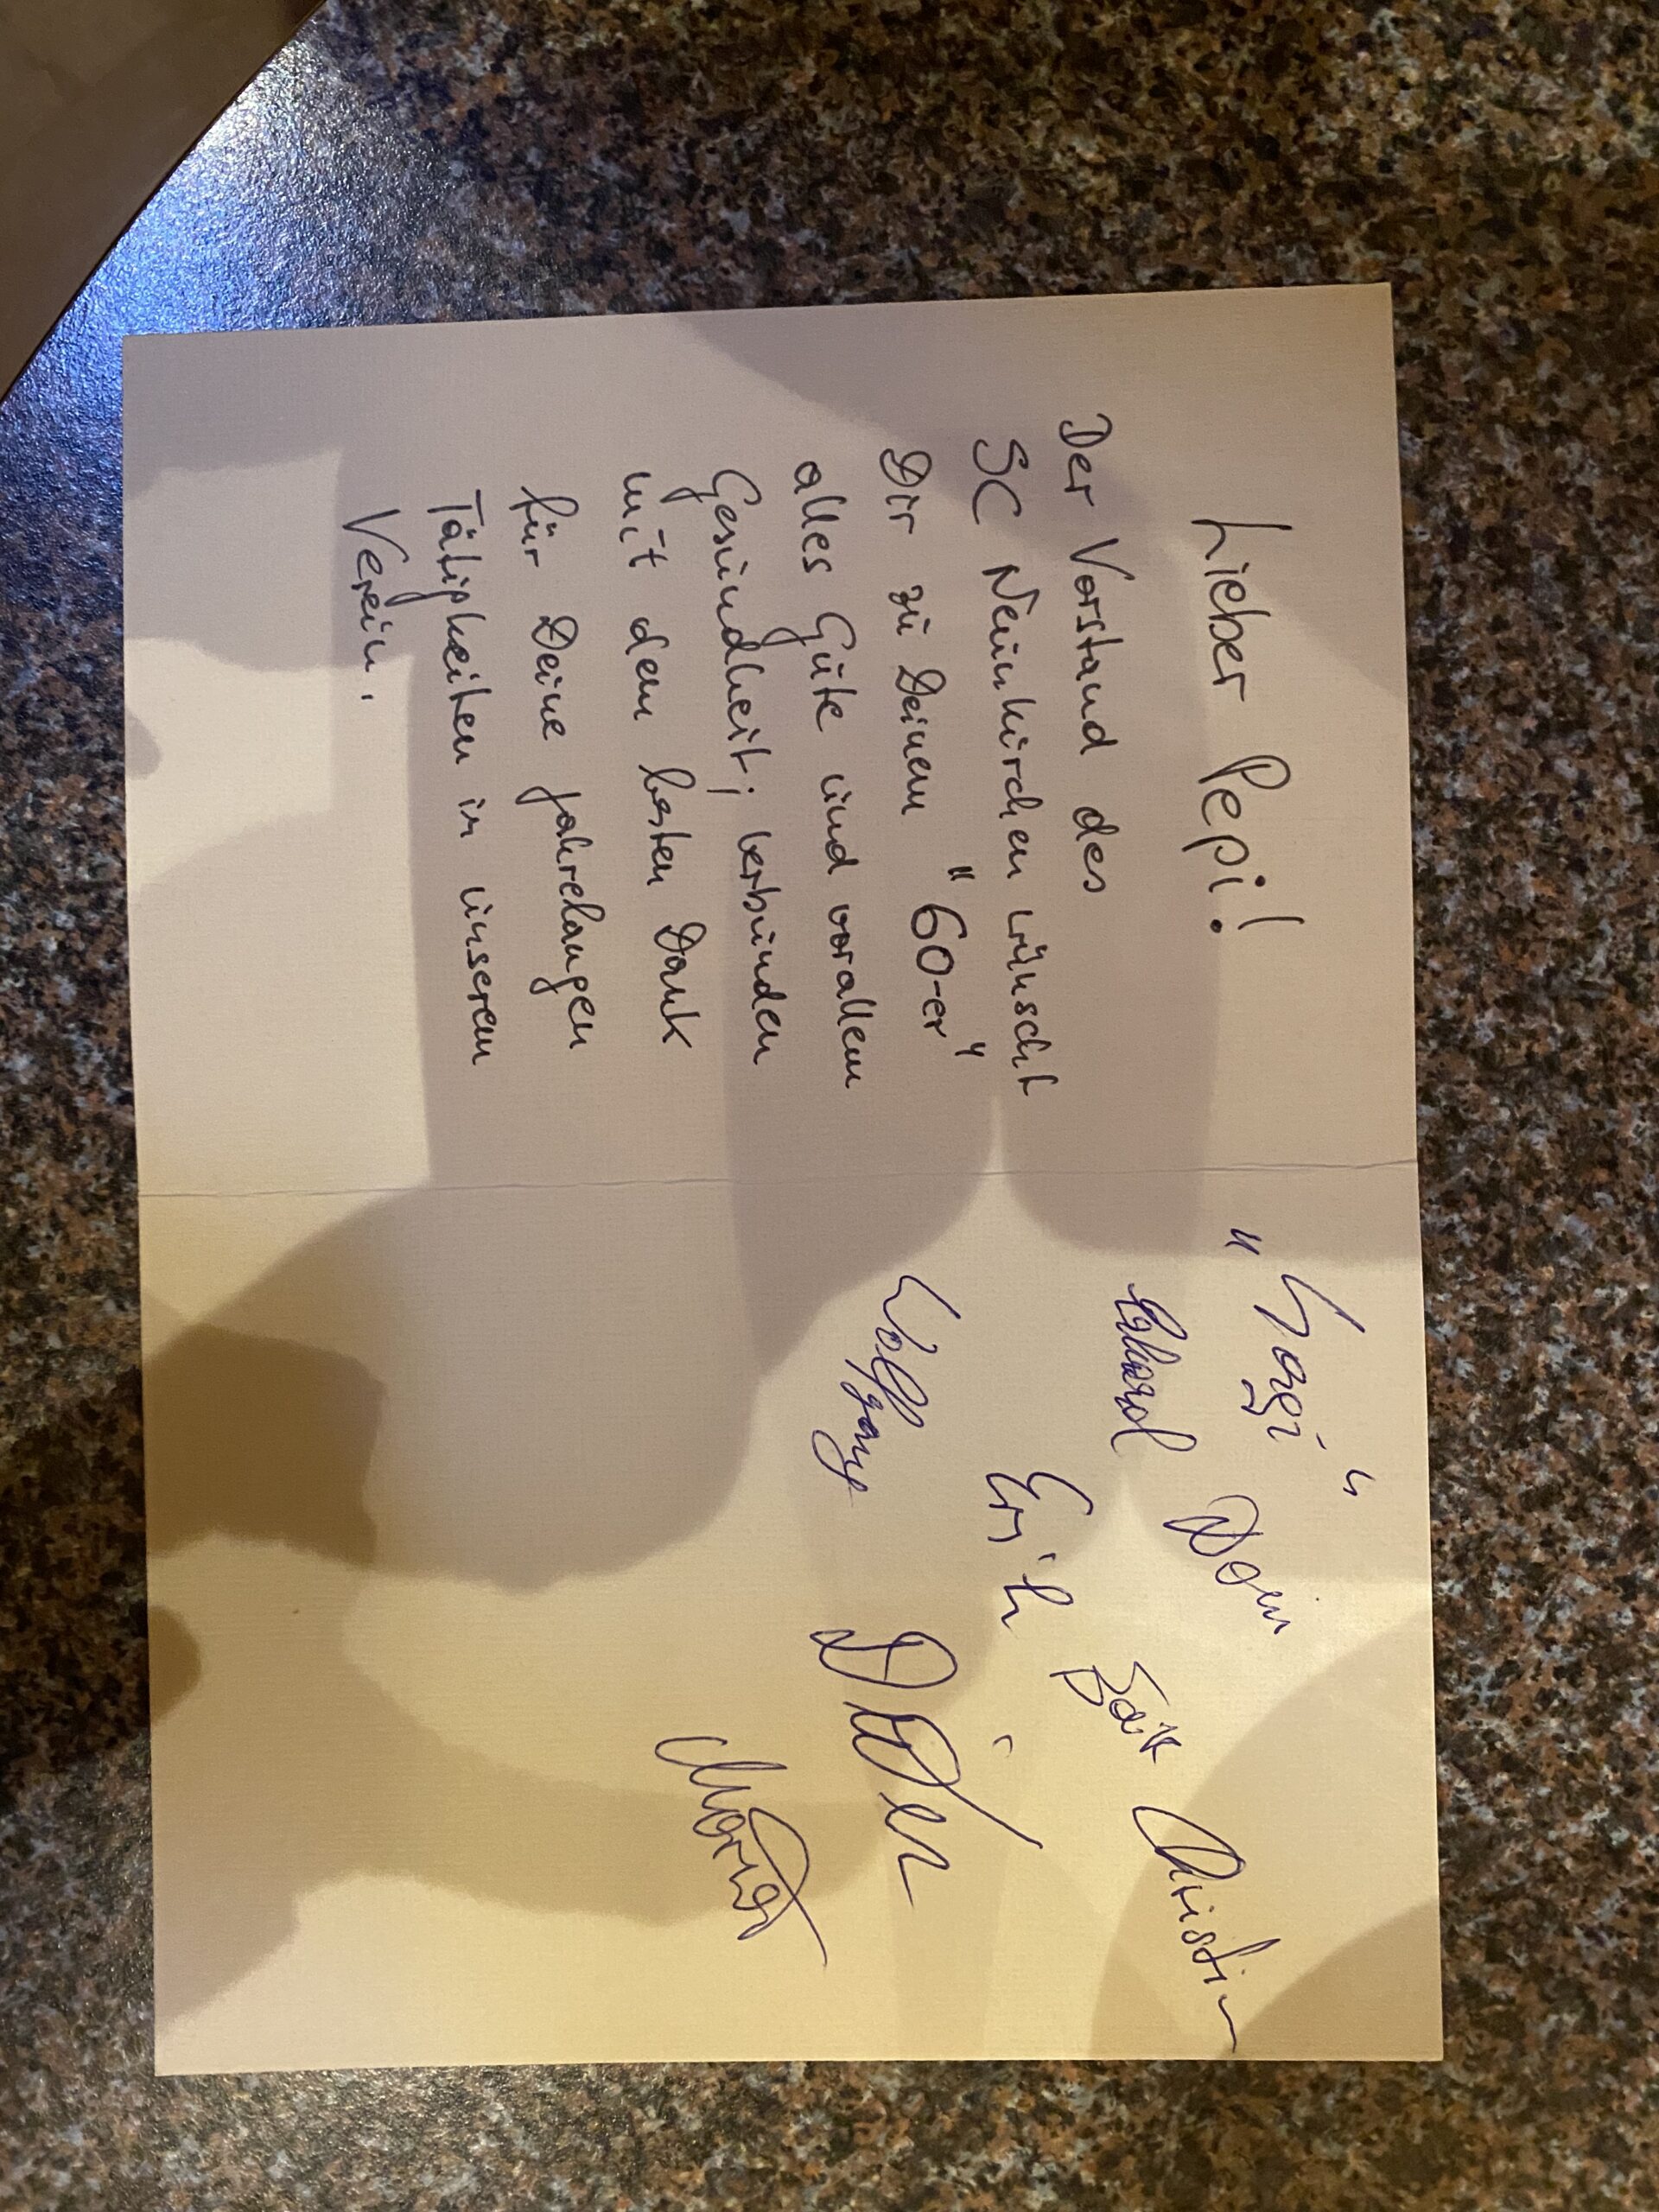 Lieber Pepi!
Der Vorstand des
SC Neunkirchen wünscht
Dir zu Deinem "60-er"
alles Gute und vorallem
Gesundheit, verbunden
mit dem besten Dank
für Deine jahrelangen
Tätigkeiten in unserem
Verein.
Erich
Christian
Wolfgang